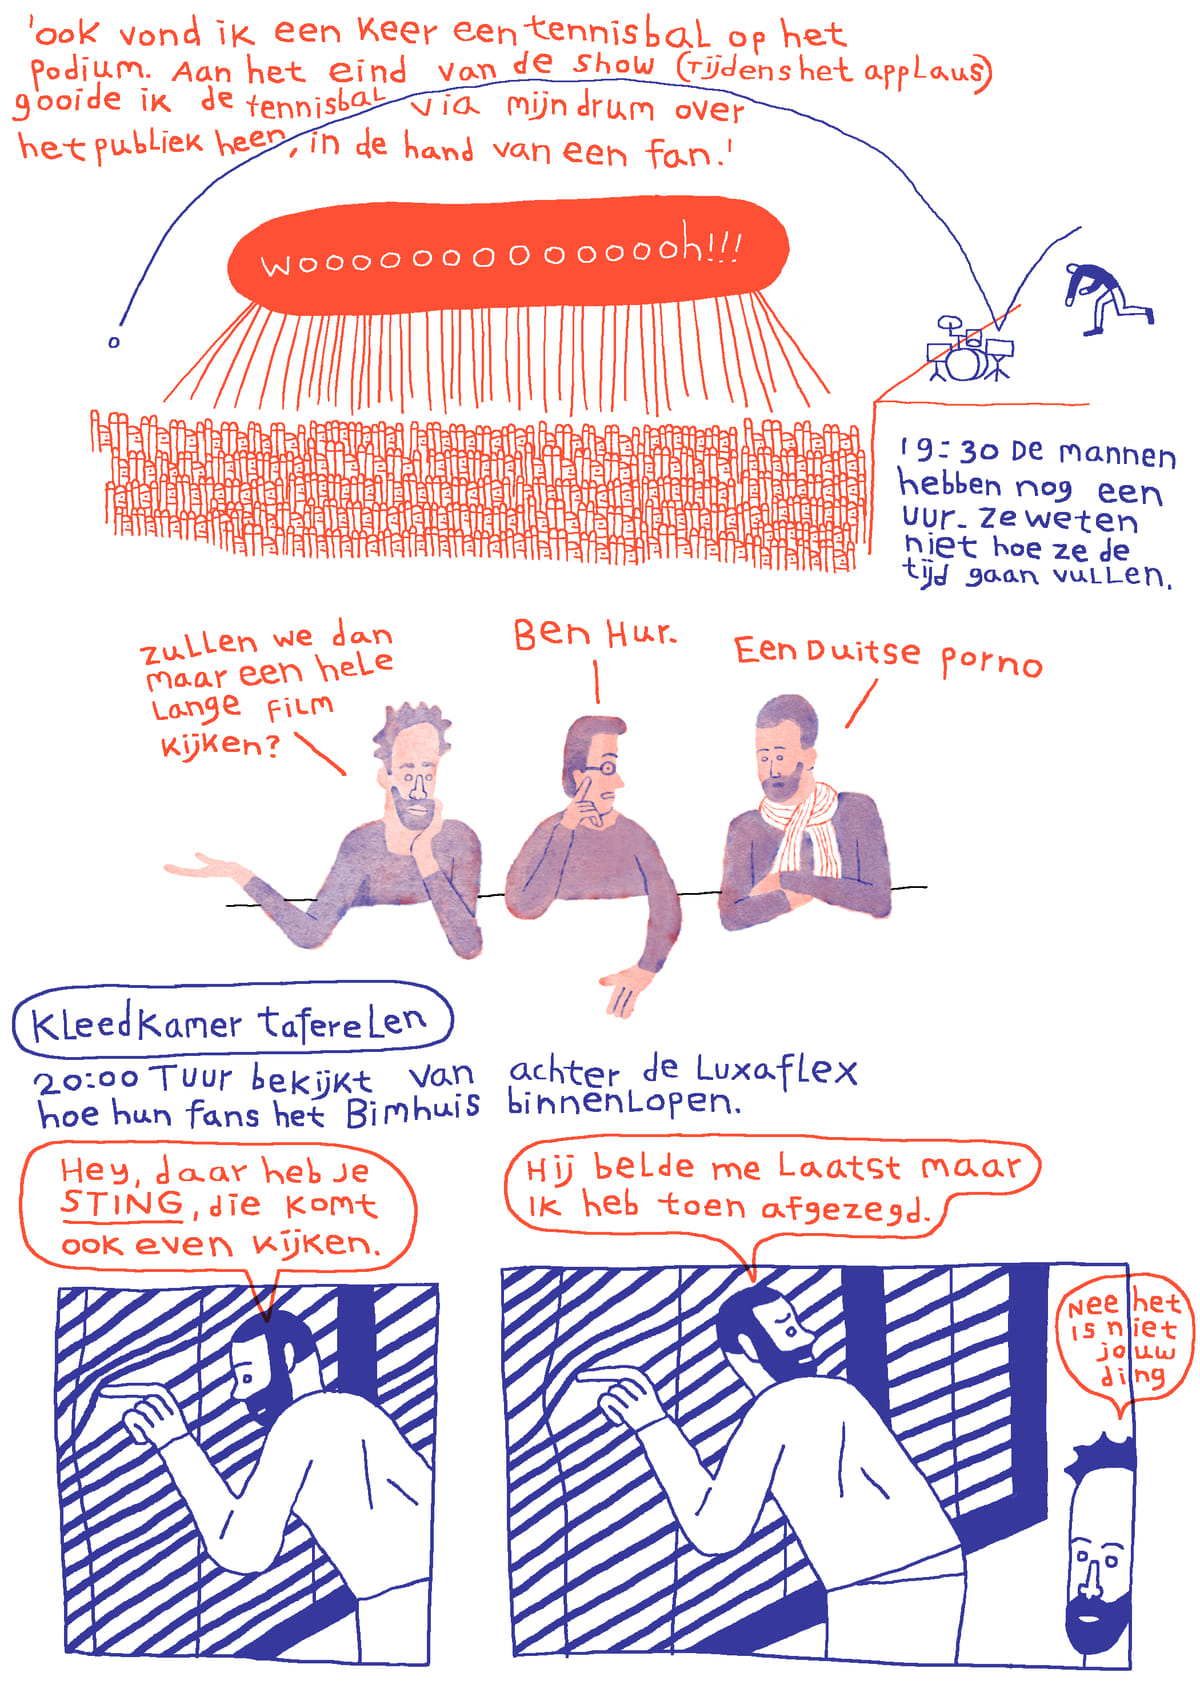 'ook vond ik een keer een tennisbal op het
podium. Aan het eind van de show (tijdens het applaus)
gooide ik de tennisbal via mijn drum over
het publiek heen, in de hand van een fan.'
woooooooooooooooh!!!
19:30 De mannen
hebben nog een
uur. ze weten
niet hoe ze de
tijd gaan vullen.
zullen we dan
maar een hele
lange film
kijken?
Ben Hur.
Een Duitse porno
Kleedkamer taferelen
20:00 Tuur bekijkt van achter de Luxaflex
hoe hun fans het Bimhuis binnenlopen.
Hey, daar heb je
STING, die komt
ook even kijken.
Hij belde me laatst maar
ik heb toen afgezegd.
Nee het
is niet
jouw
ding